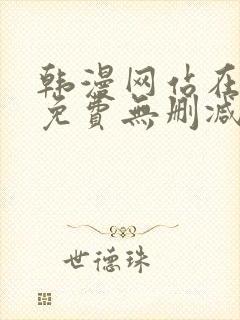 韩漫网站在
免費無删减
世德珠